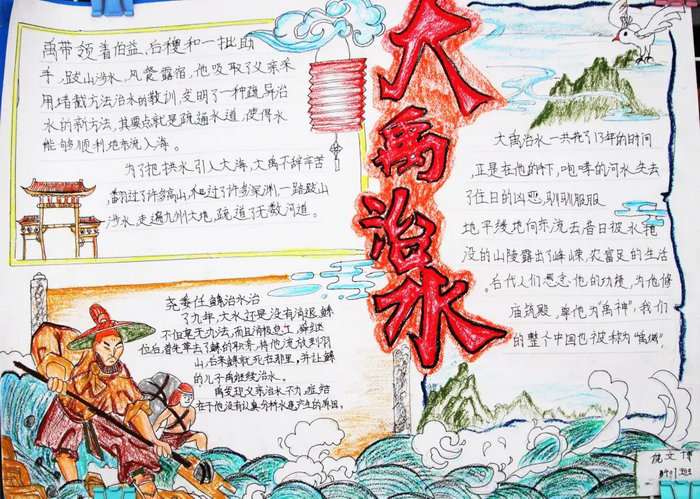 大禹治水
禹带领着伯益、后稷和一批助
手，跋山涉水，风餐露宿，他吸取了父亲采
用堵截方法治水的教训，发明了一种疏导治
水的新方法，其要点就是疏通水道，使得水
能够顺利地东流入海。
为了把洪水引入大海，大禹不辞辛苦
翻过了许多高山，越过了许多深渊一路跋山
涉水，走遍九州大地，疏，道了无数河道。
尧委任鲧治水治
了九年，大水还是没有消退鲧
不但毫无办法，而且消极怠工，舜继
位后，首先革去了鲧的职务，将他流放到羽
山，后来鲧就死在那里，并让鲧
的儿子禹继续治水。
禹发现父亲治水不力，症结
在于他没有认真分析水患产生的原因。
大禹治水一共花了13年的时间
正是在他的下，咆哮的河水失去
了往日的凶恶，驯驯服服
地平缓地向东流去昔日被水淹
没的山陵露出了峥嵘，农富足的生活
后代人们感念他的功绩，为他修
庙筑殿，尊他为“禹神”，我们
的整个中国也被称为“禹域”